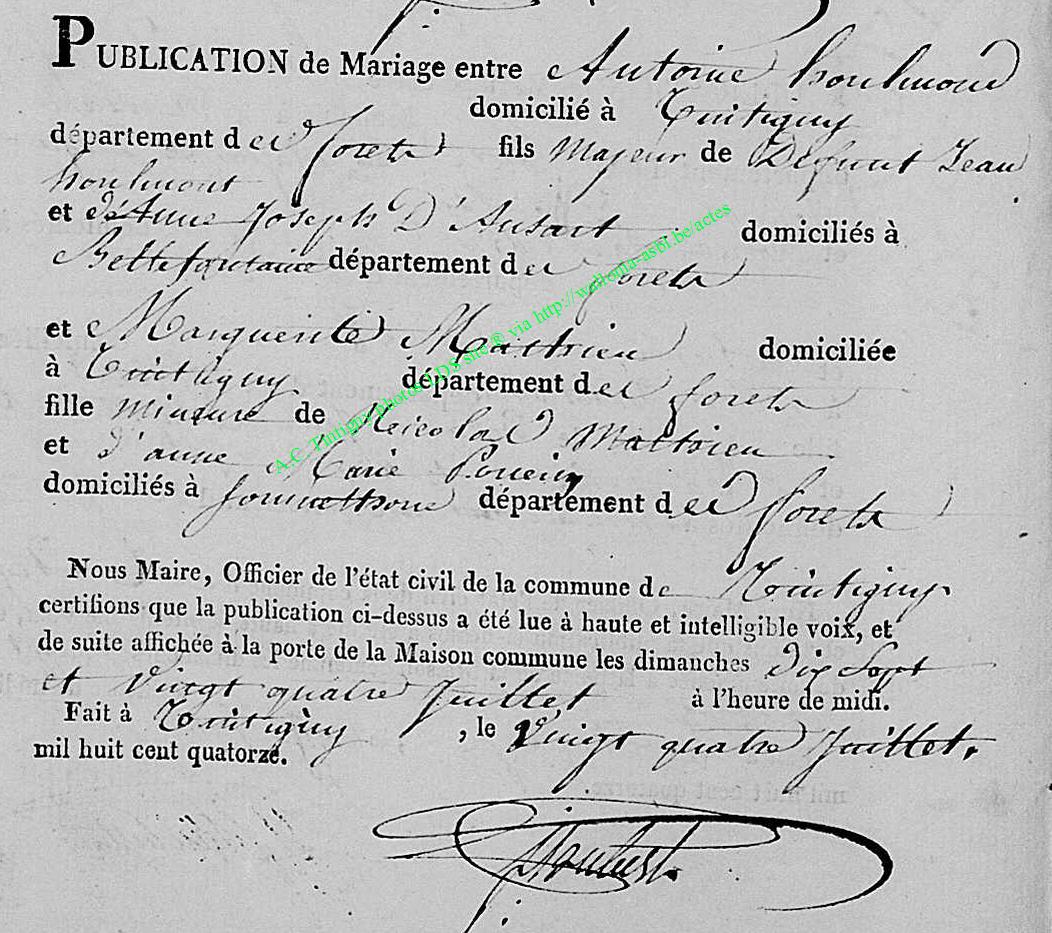 PUBLICATION de Mariage entre Antoine houlmont
domicilié à Tintigny
département des forets fils Majeur de Défunt Jean
houlmont
et d'Anne Joseph D'Ansart domiciliés à
Bellefontaine département des forets
et Marguerite Mathieu domiciliée
à Tintigny département des forets
fille mineure de Neicolas Mathieu
et d'anne Marie Poncin
domiciliés à sommethone département des forets
Nous Maire, Officier de l'état civil de la commune de Tintigny
certifions que la publication ci-dessus a été lue à haute et intelligible voix, et
de suite affichée à la porte de la Maison commune les dimanches dix Sept
et vingt quatre Juillet à l'heure de midi.
Fait à Tintigny, le vingt quatre Juillet,
mil huit cent quatorze.
A.C. Tintigny photos LDS site ® via http://wallonia-asbl.be/actes